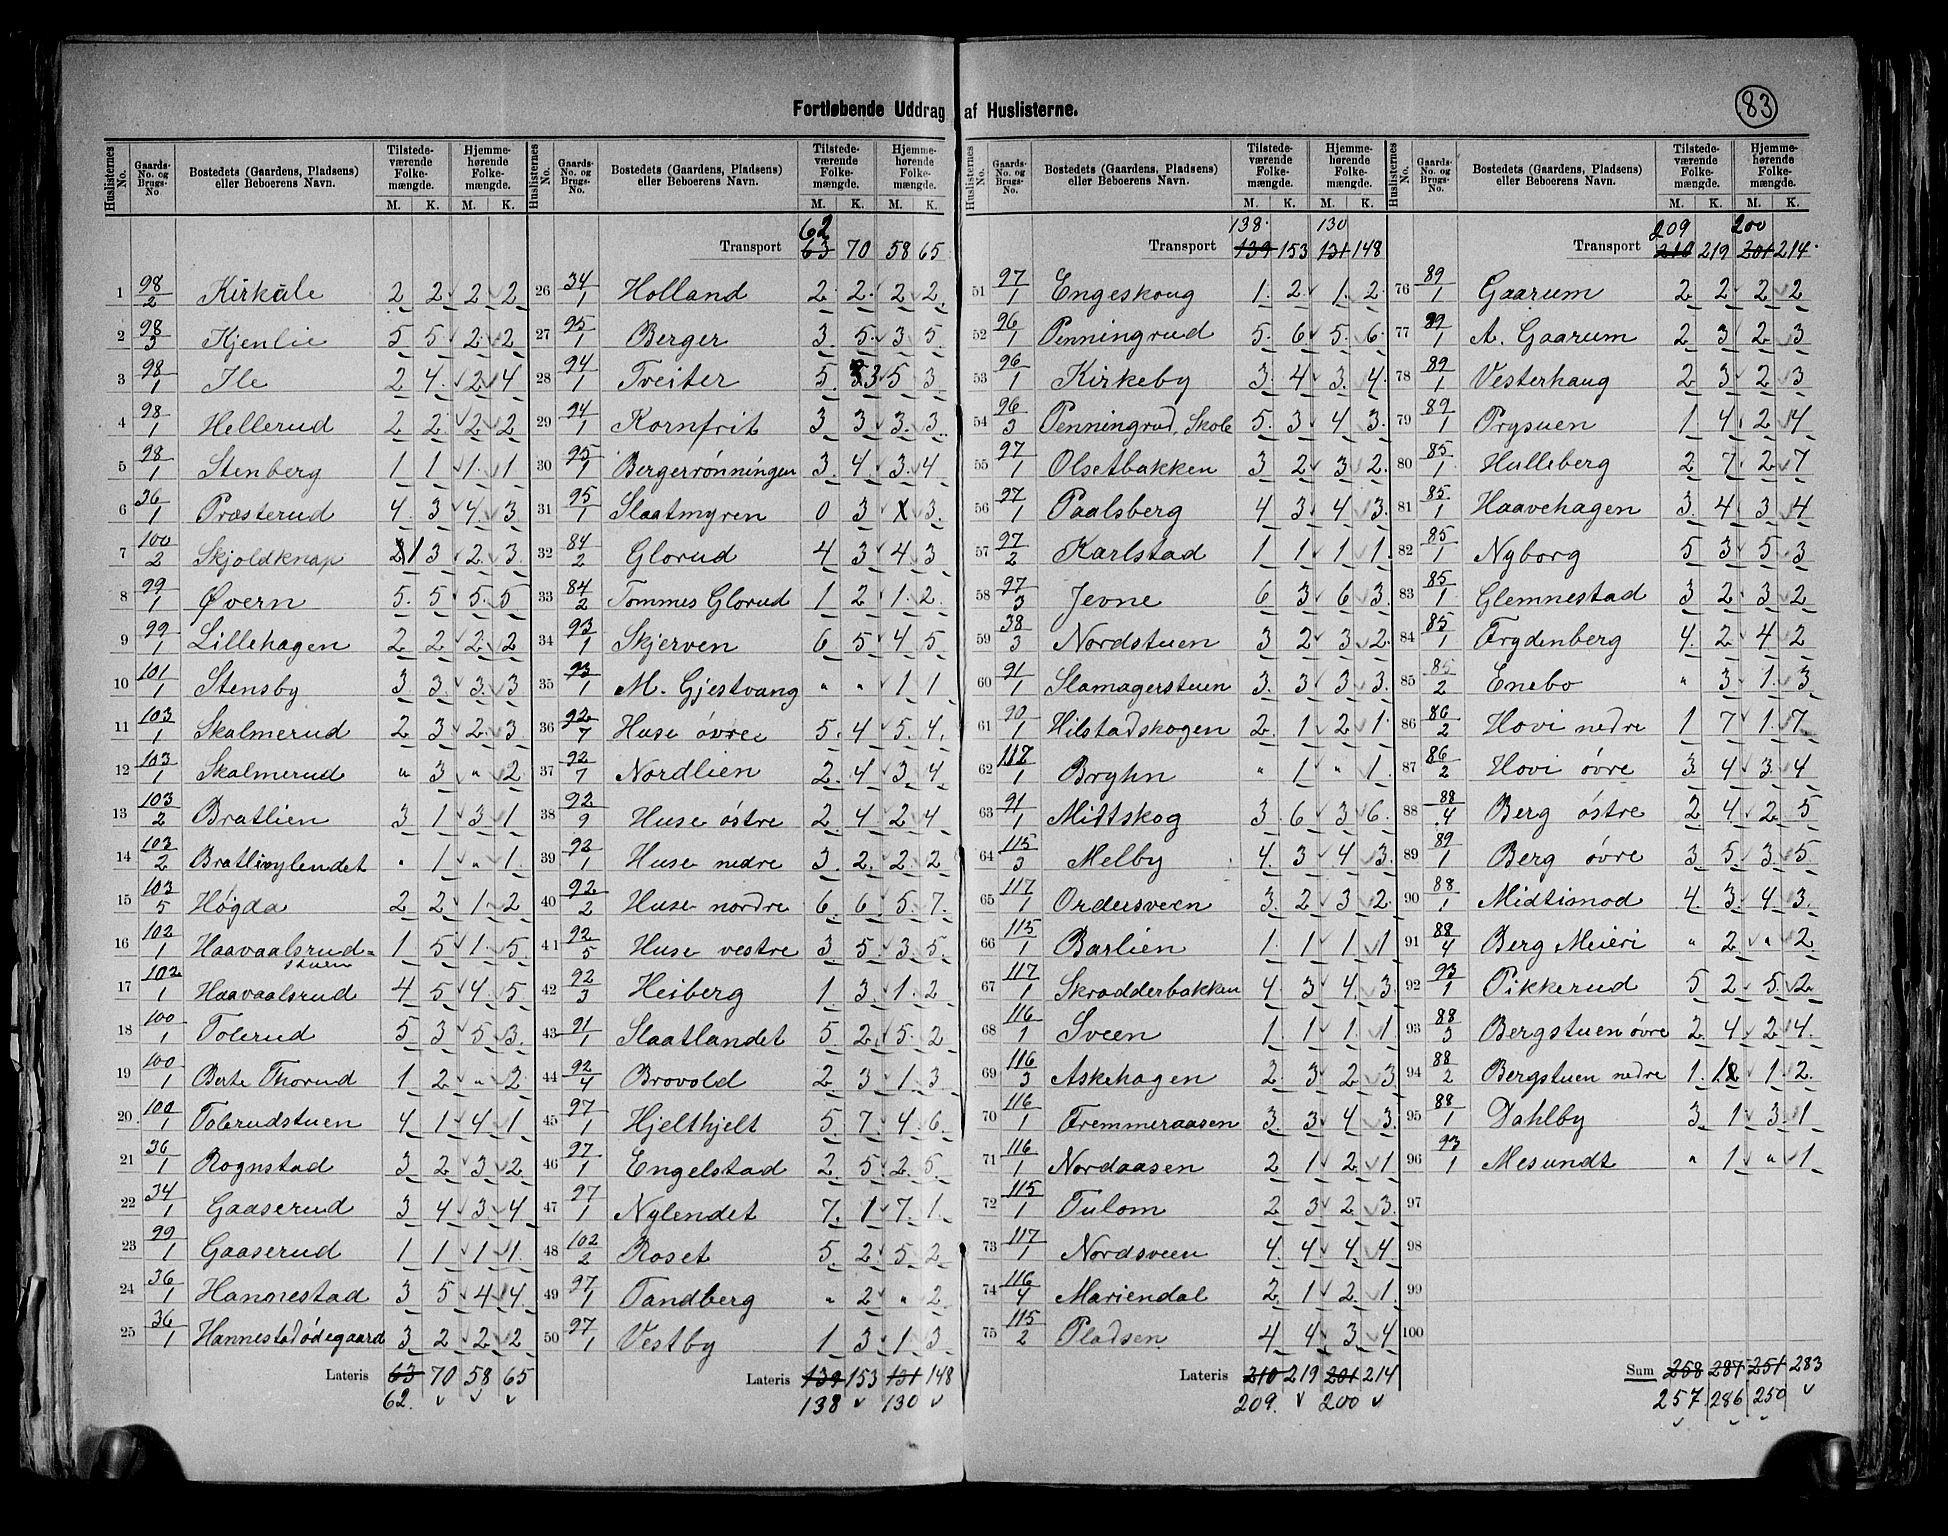 83
Fortløbende Uddrag af Huslisterne.
Huslisternes No. | Gaards-No. og Brugs-No | Bostedets (Gaardens, Pladsens) eller Beboerens Navn. | Tilstedeværende Folkemængde. M. K. | Hjemmehørende Folkemængde. M. K.
1 98/2 Kirkåle 2 2 2 2
2 98/3 Kjenlie 5 5 2 2
3 98/1 Ile 2 4 2 4
4 98/1 Hellerud 2 2 2 2
5 98/1 Stenberg 1 1 1 1
6 36/1 Præsterud 4 3 4 3
7 100/2 Skjoldknap 1 3 2 3
8 99/1 Øvern 5 5 5 5
9 99/1 Lillehagen 2 2 2 2
10 101/1 Stensby 3 3 3 3
11 103/1 Skalmerud 2 3 2 3
12 103/1 Skalmerud " 3 " 2
13 103/2 Bratlien 3 1 3 1
14 103/2 Bratlinylendet " 1 " 1
15 103/5 Høgda 2 2 1 2
16 102/1 Haavaalsrud= 1 5 1 5
stuen
17 102/1 Haavaalsrud 4 5 4 5
18 100/1 Tolerud 5 3 5 3
19 100/1 Berte Thorud 1 2 " 2
20 100/1 Tolerudstuen 4 1 4 1
21 36/1 Rognstad 3 2 3 2
22 34/1 Gaaserud 3 4 3 4
23 99/1 Gaaserud 1 1 1 1
24 36/1 Hannestad 3 5 4 4
25 36/1 Hannestadødegaard 3 2 2 2
Lateris 63 70 58 65
62
62
Transport 63 70 58 65
26 34/1 Holland 2 2 2 2
27 95/1 Berger 3 5 3 5
28 94/1 Treiter 5 3 5 3
29 94/1 Kornfrit 3 3 3 3
30 95/1 Bergerrønningen 3 4 3 4
31 95/1 Slaatmyren 0 3 X 3
32 84/2 Glorud 4 3 4 3
33 84/2 Tommes Glorud 1 2 1 2
34 93/1 Skjerven 6 5 4 5
35 93/1 M. Gjestvang " " 1 1
36 92/7 Huse øvre 5 4 5 4
37 92/7 Nordlien 2 4 3 4
38 92/9 Huse østre 2 4 2 4
39 92/1 Huse nedre 3 2 2 2
40 92/2 Huse nordre 6 6 5 7
41 92/5 Huse vestre 3 5 3 5
42 92/3 Heiberg 1 3 1 2
43 91/1 Slaatlandet 5 2 5 2
44 92/4 Brovold 2 3 1 3
45 97/1 Hjelthjelt 5 7 4 6
46 97/1 Engelstad 2 5 2 5
47 97/1 Nylendet 7 1 7 1
48 102/2 Roset 5 2 5 2
49 97/1 Tandberg " 2 " 2
50 97/1 Vestby 1 3 1 3
Lateris 139 153 131 148
138 130
Huslisternes No. | Gaards-No. og Brugs-No. | Bostedets (Gaardens, Pladsens) eller Beboerens Navn. | Tilstedeværende Folkemængde. M. K. | Hjemmehørende Folkemængde. M. K.
138 130
Transport 139 153 131 148
51 97/1 Engeskoug 1 2 1 2
52 96/1 Penningrud 5 6 5 6
53 96/1 Kirkeby 3 4 3 4
54 96/3 Penningrud, Skole 5 3 4 3
55 97/1 Olsetbakken 3 2 3 2
56 97/1 Paalsberg 4 3 4 3
57 97/2 Karlstad 1 1 1 1
58 97/3 Jevne 6 3 6 3
59 38/3 Nordstuen 3 2 3 2
60 91/1 Slamagerstuen 3 3 3 3
61 90/1 Hilstadskogen 2 1 2 1
62 112/1 Bryhn " 1 " 1
63 91/1 Midtskog 3 6 3 6
64 115/3 Melby 4 3 4 3
65 117/1 Ordersveen 3 2 3 2
66 115/1 Barlien 1 1 1 1
67 117/1 Skrædderbakken 4 3 4 3
68 116/1 Sveen 1 1 1 1
69 116/3 Askehagen 2 3 2 3
70 116/1 Fremmeraasen 3 3 4 3
71 116/1 Nordaasen 2 1 2 1
72 115/1 Tulom 2 3 2 3
73 117/1 Nordsveen 4 4 4 4
74 116/4 Mariendal 2 1 2 1
75 115/2 Pladsen 4 4 3 4
Lateris 210 219 201 214
209 200
209 200
Transport 210 219 201 214
76 89/1 Gaarum 2 2 2 2
77 89/1 A. Gaarum 2 3 2 3
78 89/1 Vesterhaug 2 3 2 3
79 89/1 Prysuen 1 4 2 4
80 85/1 Hulleberg 2 7 2 7
81 85/1 Haavehagen 3 4 3 4
82 85/1 Nyborg 5 3 5 3
83 85/1 Glemnestad 3 2 3 2
84 85/1 Frydenberg 4 2 4 2
85 85/2 Enebo " 3 1 3
86 86/2 Hovi nedre 1 7 1 7
87 86/2 Hovi øvre 3 4 3 4
88 88/4 Berg østre 2 4 2 5
89 89/1 Berg øvre 3 5 3 5
90 88/1 Midtimod 4 3 4 3
91 88/4 Berg Meieri " 2 " 2
92 93/1 Pikkerud 5 2 5 2
93 88/3 Bergstuen øvre 2 4 2 4
94 88/2 Bergstuen nedre 1 1 1 2
95 88/1 Dahlby 3 1 3 1
96 93/1 Mesundt " 1 " 1
97
98
99
100
Sum 258 287 251 283
257 286 250